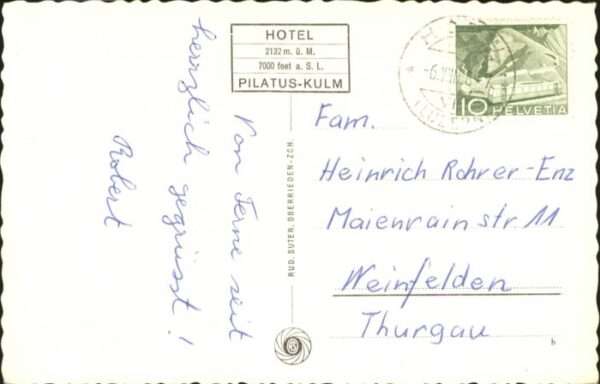 HOTEL
2132 m. ü. M.
7000 feet a. S. L.
PILATUS-KULM
10 HELVETIA
Von Ferne seit
herzlich gegrüsst!
Robert
RUD. SUTER, OBERRIEDEN-ZCH.
Fam.
Heinrich Rohrer-Enz
Maienrainstr 11
Weinfelden
Thurgau
b